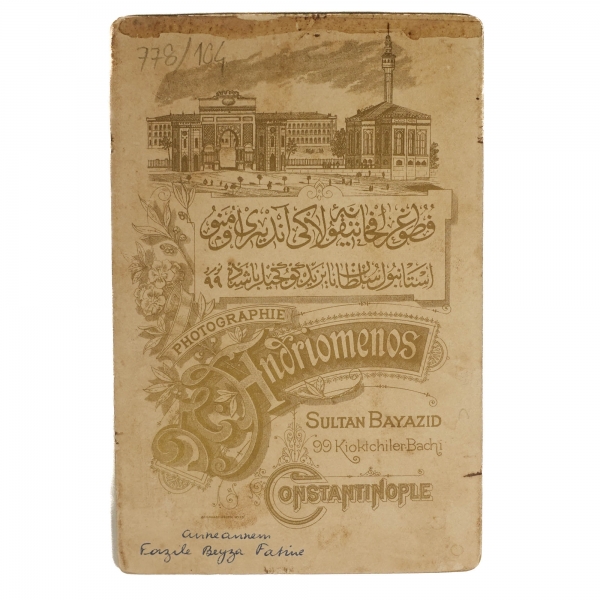 778/104
فوطوغرافخانهٔ نيقولاكى آندريومنو
استانبول سلطان بايزيد كوكجيلر باشنده نومرو ٩٩
PHOTOGRAPHIE
Andriomenos
SULTAN BAYAZID
99 Kioktchiler-Bachi
CONSTANTINOPLE
anneannem
Fazile Beyza Fatine